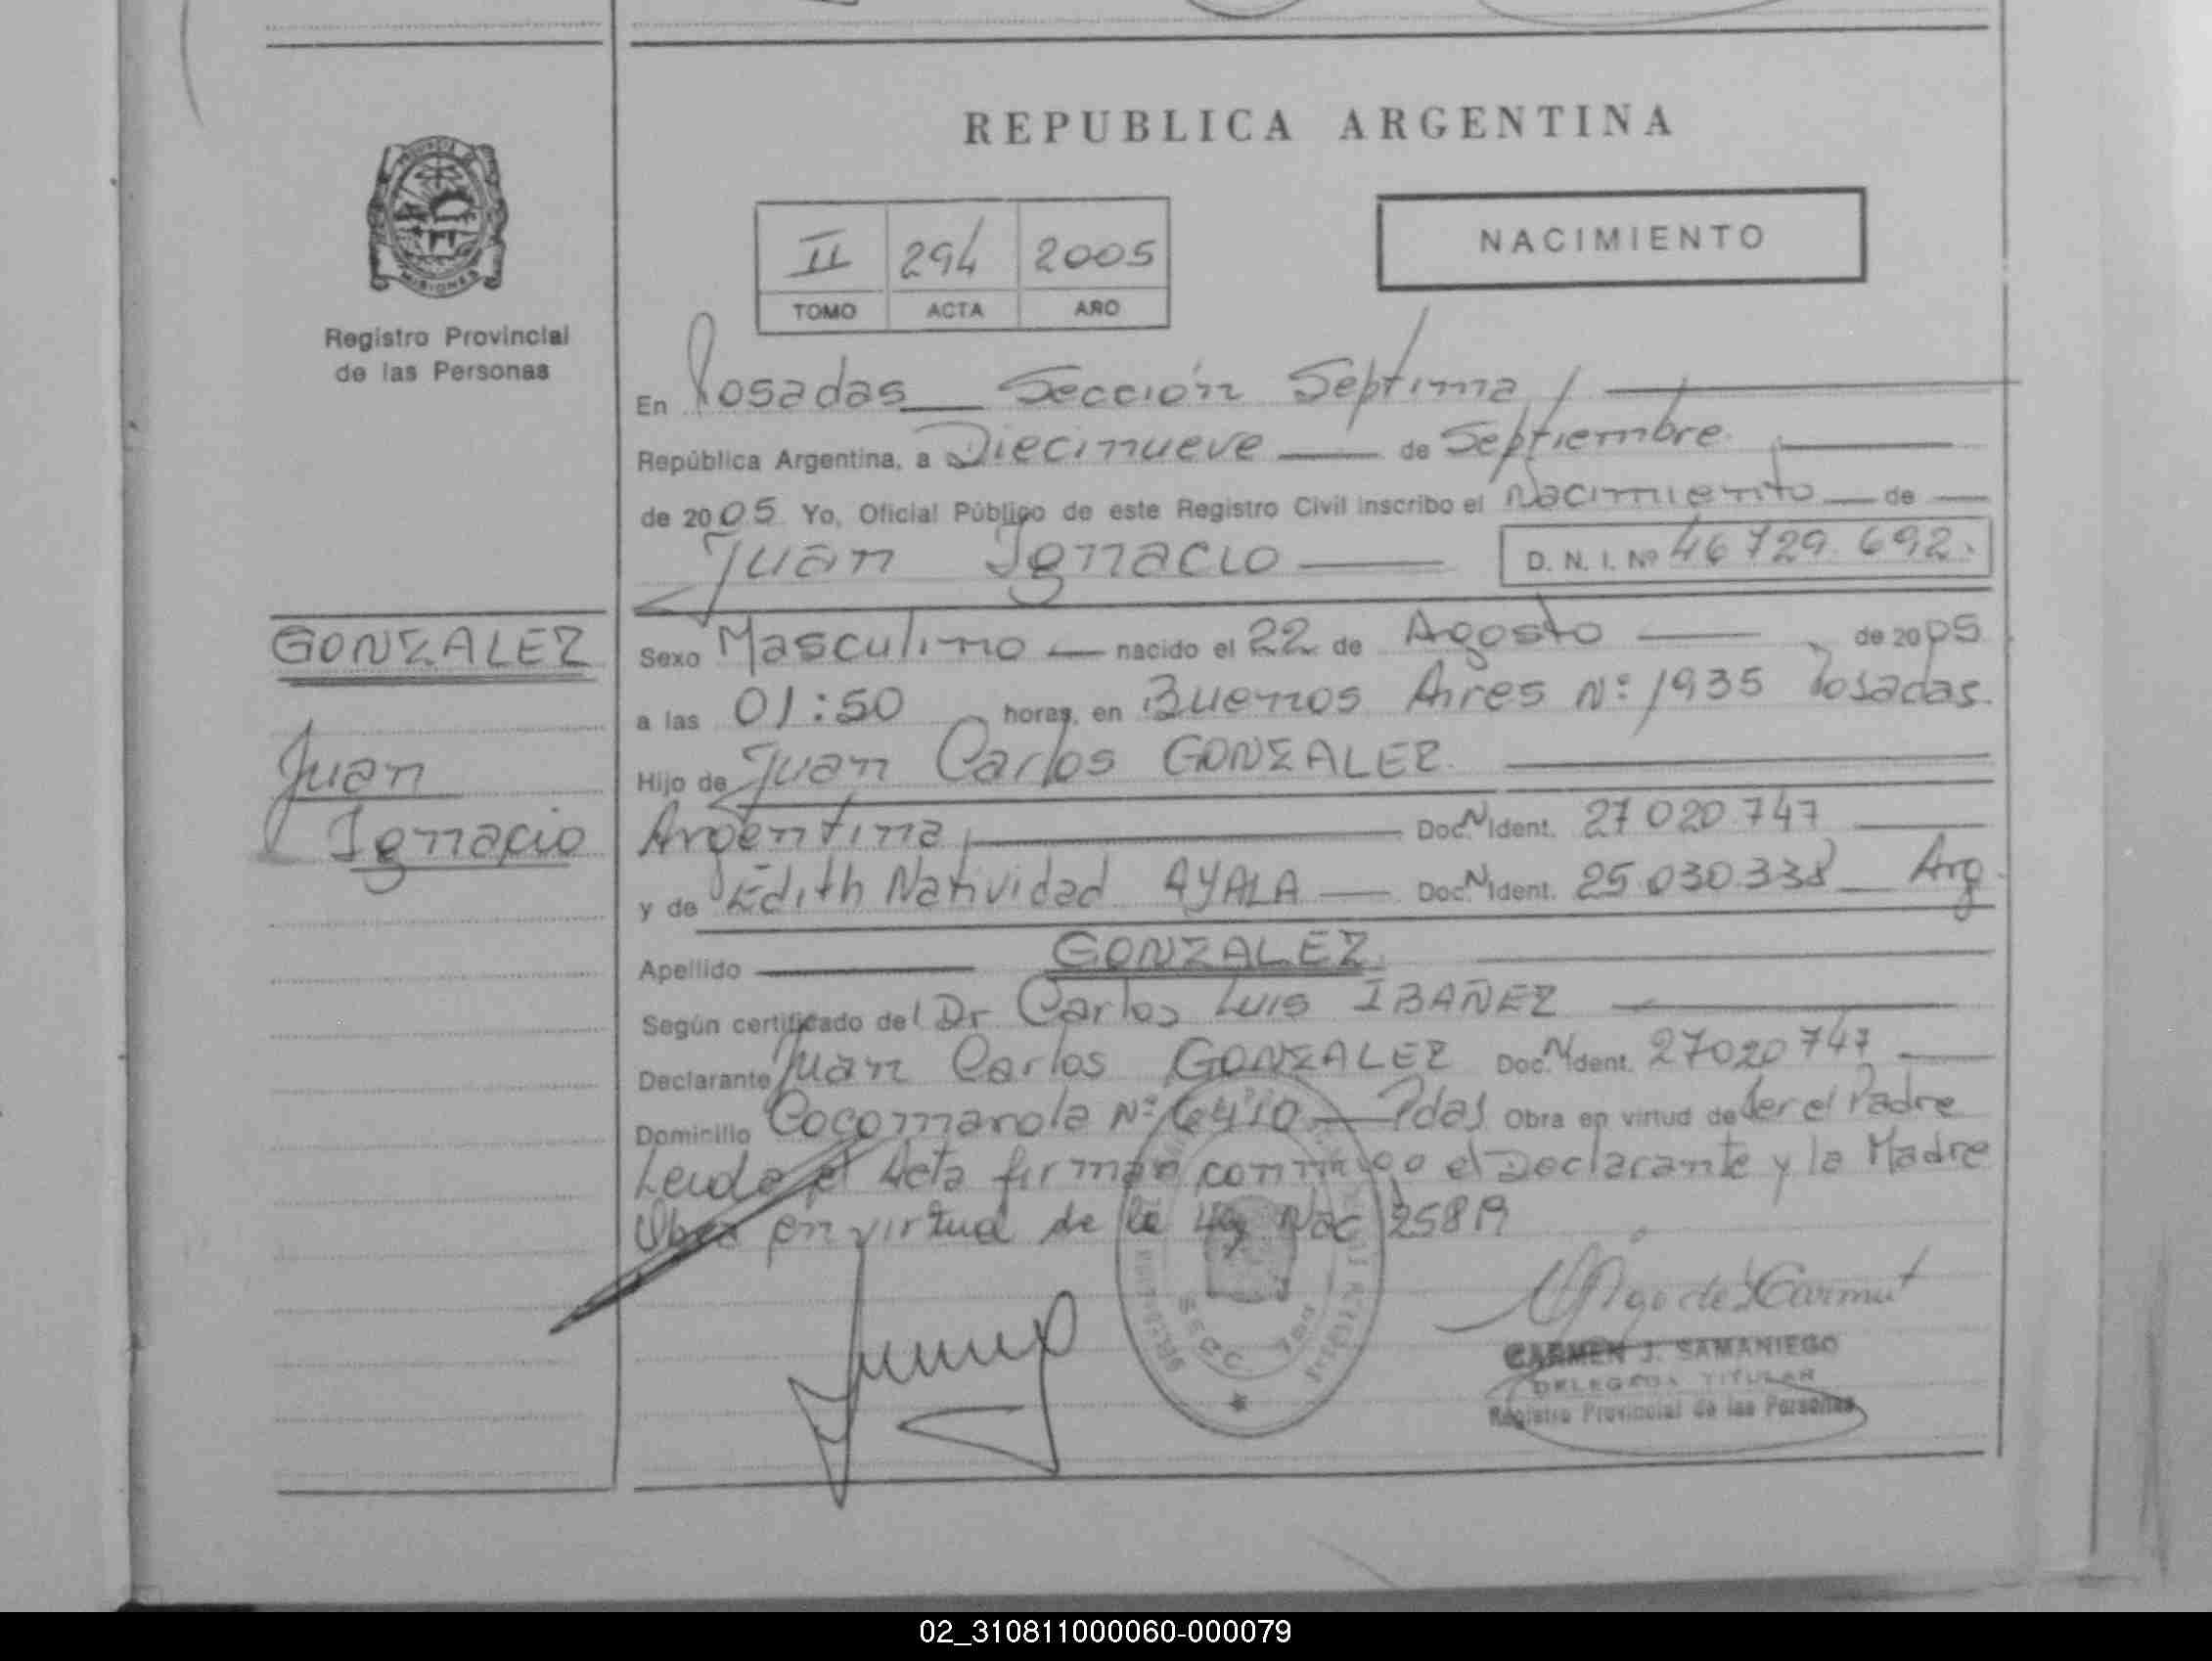 REPUBLICA ARGENTINA
NACIMIENTO
II 294 2005
TOMO ACTA AÑO
PROVINCIA
MISIONES
Registro Provincial
de las Personas
En Posadas Sección Septima
República Argentina, a Diecinueve de Septiembre
de 2005 Yo, Oficial Público de este Registro Civil inscribo el Nacimiento de
Juan Ignacio D. N. I. Nº 46 729.692.
GONZALEZ
Juan
Ignacio
Sexo Masculino nacido el 22 de Agosto de 2005
a las 01:50 horas, en Buenos Aires Nº 1935 Posadas.
Hijo de Juan Carlos GONZALEZ
Argentina Doc. N Ident. 27 020 747
y de Edith Natividad AYALA Doc. N Ident. 25.030.338 Arg.
Apellido GONZALEZ.
Según certificado del Dr Carlos Luis IBAÑEZ
Declarante Juan Carlos GONZALEZ Doc. N Ident. 27020 747
Domicilio Cocomarola Nº 6410 Pdas Obra en virtud de Ser el Padre
Leida el Acta firman conmigo el Declarante y la Madre
Obra en virtud de la Ley Nac 25819
SECC 7ma
CARMEN J. SAMANIEGO
DELEGADA TITULAR
Registro Provincial de las Personas
02_310811000060-000079